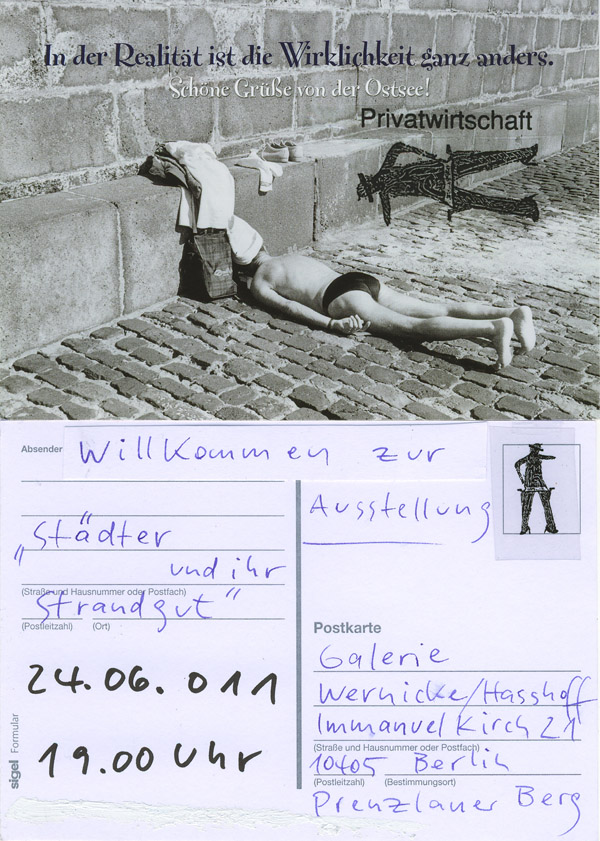 In der Realität ist die Wirklichkeit ganz anders.
Schöne Grüße von der Ostsee!
Privatwirtschaft
Absender
Willkommen zur
Ausstellung
"Städter
und ihr
(Straße und Hausnummer oder Postfach)
Strandgut"
(Postleitzahl) (Ort)
24.06.011
19.00 Uhr
sigel Formular
Postkarte
Galerie
Wernicke/Hasshoff
Immanuel Kirch 21
(Straße und Hausnummer oder Postfach)
10405 Berlin
(Postleitzahl) (Bestimmungsort)
Prenzlauer Berg